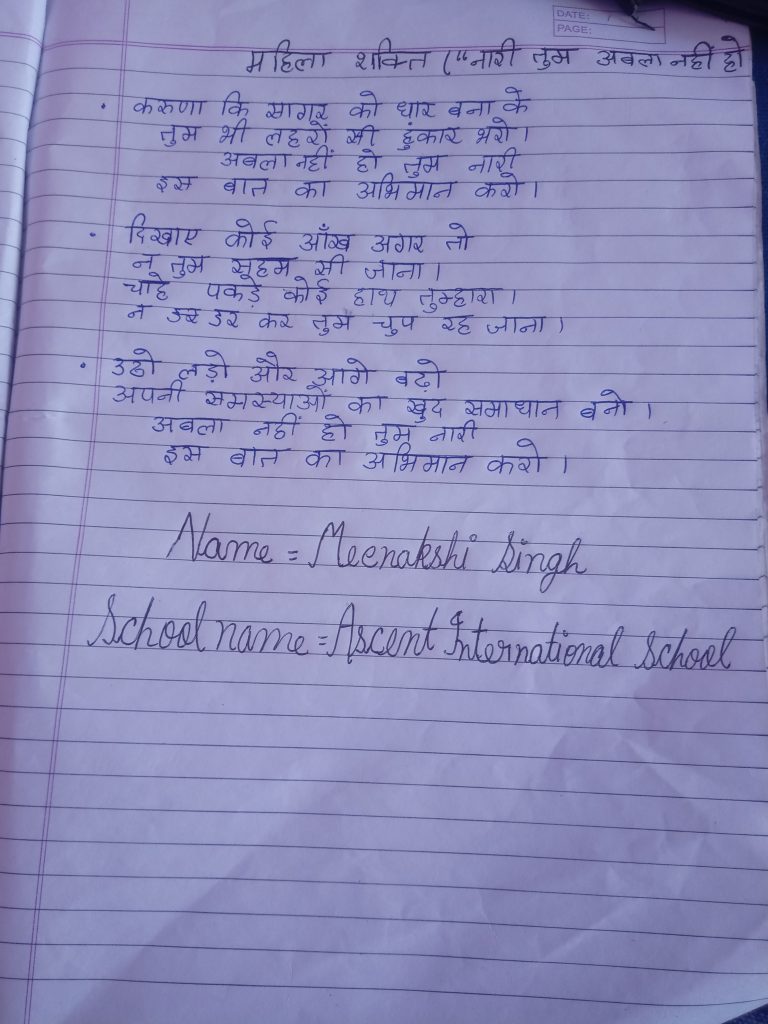 DATE:
PAGE:
महिला शक्ति ("नारी तुम अबला नहीं हो
• करुणा कि सागर को धार बना के
तुम भी लहरों सी हुंकार भरो।
अबला नहीं हो तुम नारी
इस बात का अभिमान करो।
• दिखाए कोई आँख अगर तो
न तुम सहम सी जाना।
चाहे पकड़े कोई हाथ तुम्हारा।
न डर डर कर तुम चुप रह जाना।
• उठो लड़ो और आगे बढ़ो
अपनी समस्याओं का खुद समाधान बनो।
अबला नहीं हो तुम नारी
इस बात का अभिमान करो।
Name = Meenakshi Singh
School name = Ascent International School